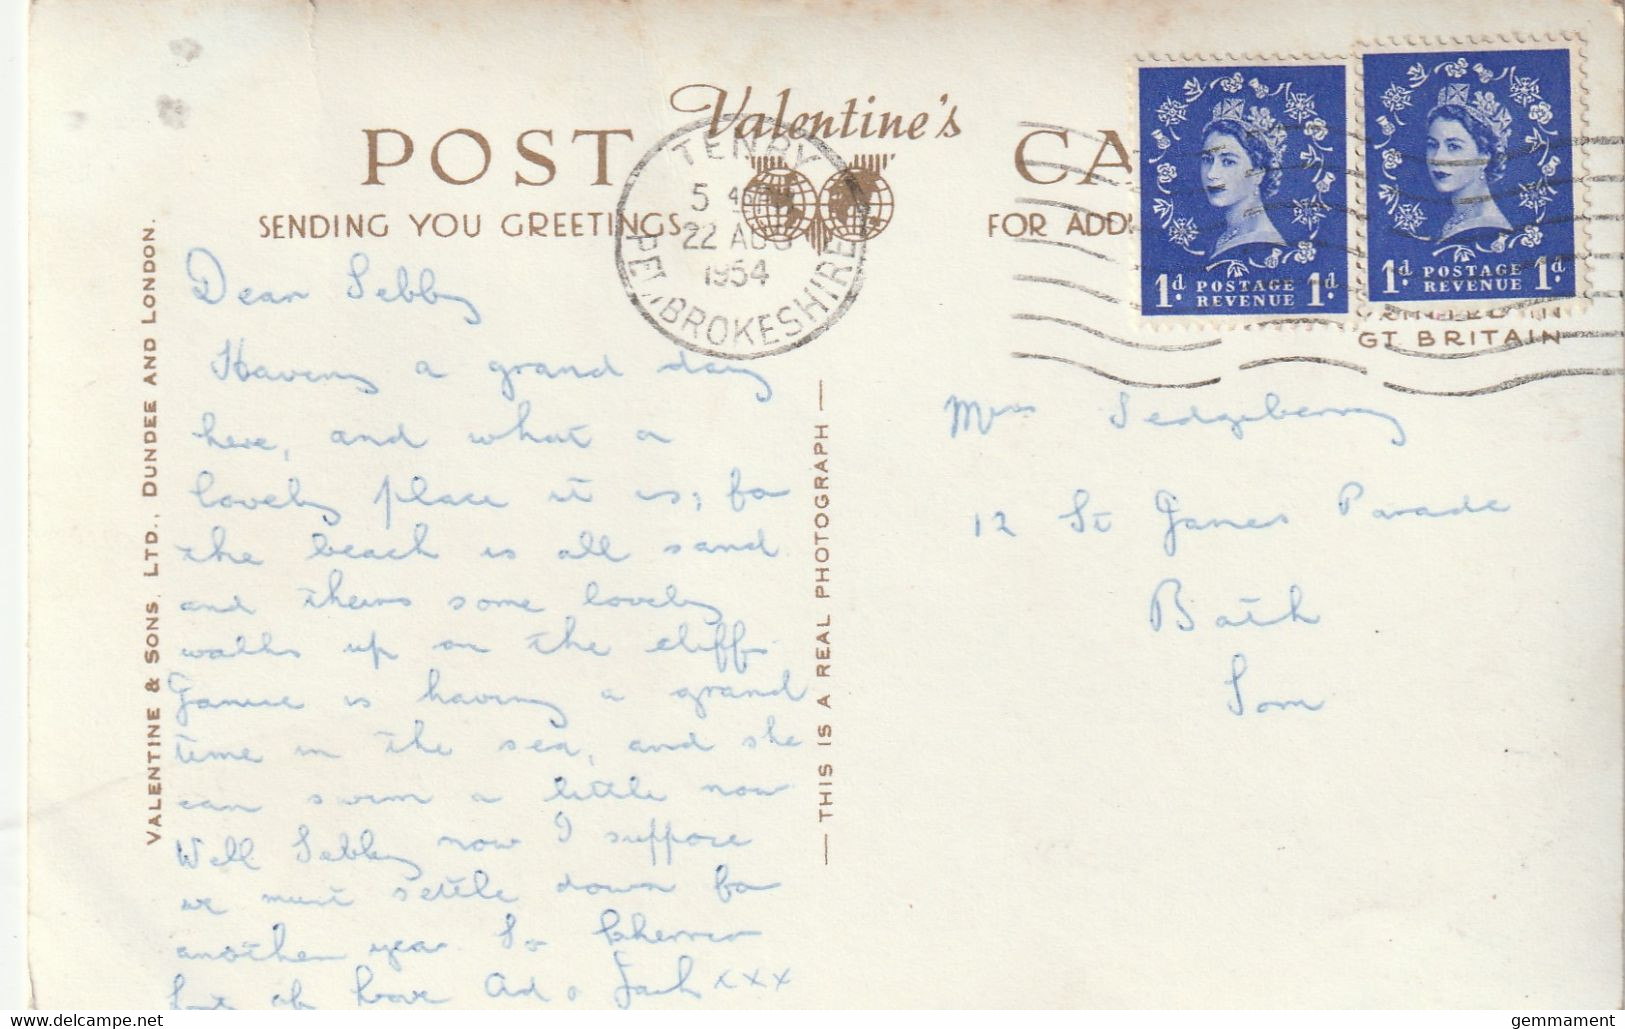 POST CA
Valentine's
SENDING YOU GREETINGS
FOR ADD
TENBY
5 45 PM
22 AUG
1954
PEMBROKESHIRE
1d. POSTAGE REVENUE 1d.
1d. POSTAGE REVENUE 1d.
PRINTED IN
GT. BRITAIN
VALENTINE & SONS, LTD., DUNDEE AND LONDON.
THIS IS A REAL PHOTOGRAPH
Dear Sebby
Having a grand day
here, and what a
lovely place it is, for
the beach is all sand
and theres some lovely
walks up on the cliffs
Janice is having a grand
time in the sea, and she
can swim a little now
Well Sebby now I suppose
we must settle down for
another year So Cheerio
lots of love Ad & Jack xxx
Mrs Sedgeberry
12 St James Parade
Bath
Som
gemmament